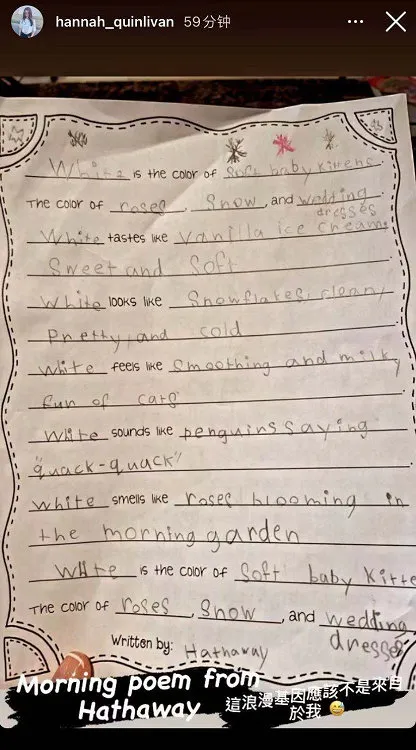 hannah_quinlivan 59分钟
White is the color of soft baby kittens.
The color of roses, Snow, and wedding
dresses
White tastes like vanilla ice cream,
Sweet and Soft
White looks like Snowflakes, clean,
Pretty, and cold
White feels like Smoothing and milk,
fun of cats
White sounds like penguins saying
"quack-quack"
White smells like roses blooming in
the morning garden
White is the color of Soft baby kitte
The color of roses, Snow, and wedding
dresses
Written by: Hathaway
Morning poem from
Hathaway
這浪漫基因應該不是來自
於我 😅